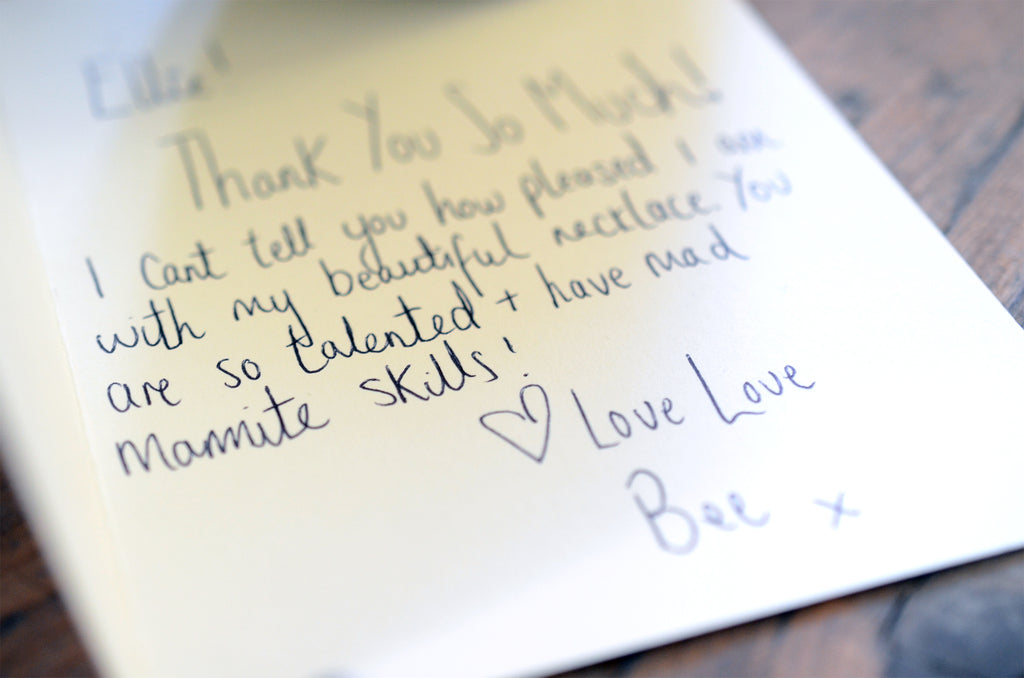 Ellie!
Thank You So Much!
I Cant tell you how pleased I am
with my beautiful necklace. You
are so talented + have mad
Marmite skills!
♡ Love Love
Bee x